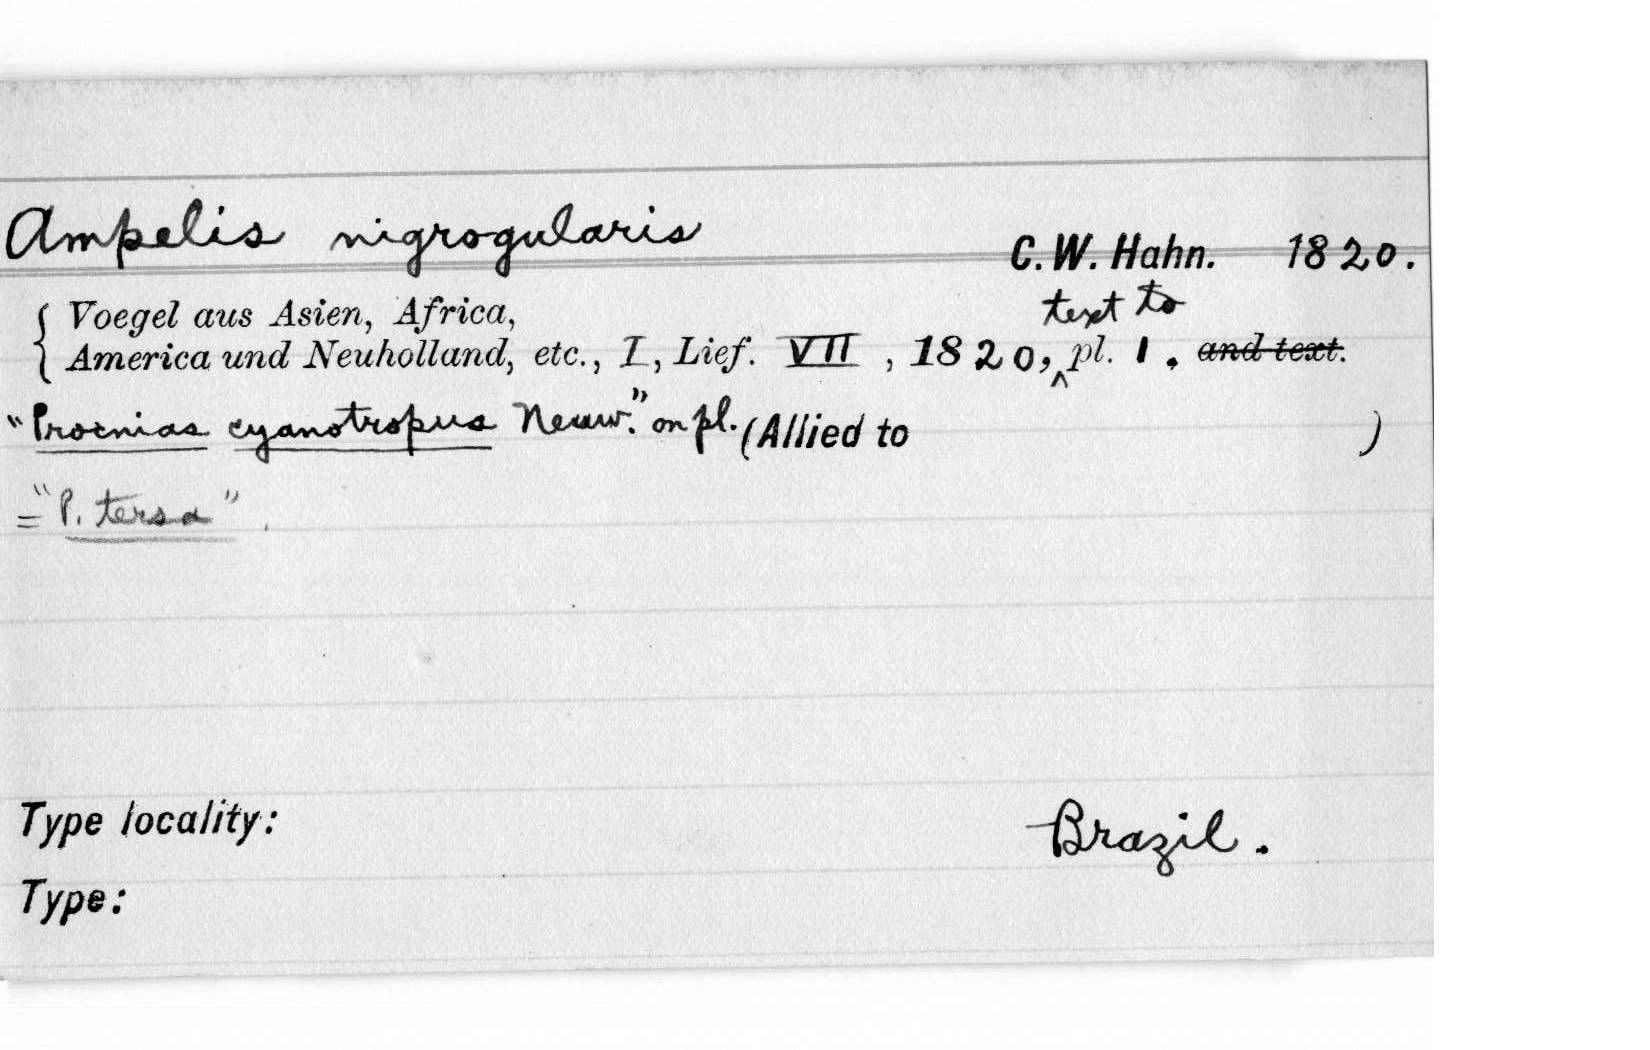 Ampelis nigrogularis C. W. Hahn. 1820.
Voegel aus Asien, Africa,
text to
America und Neuholland, etc., I, Lief. VII, 1820, ^ pl. 1. and text.
"Procnias cyanotropus Neuw." on pl. (Allied to )
= "P. tersa".
Type locality: Brazil.
Type: